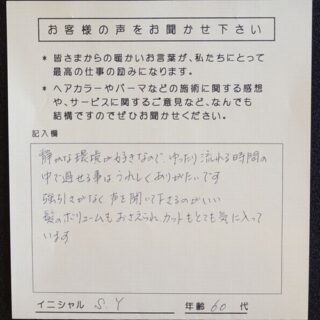 お客様の声をお聞かせ下さい
* 皆さまからの暖かいお言葉が、私たちにとって
最高の仕事の励みになります。
* ヘアカラーやパーマなどの施術に関する感想
や、サービスに関するご意見など、なんでも
結構ですのでぜひお聞かせください。
記入欄
静かな環境が好きなので、ゆったり流れる時間の
中で過せる事はうれしくありがたいです
強引さがなく声を聞いて下さるのがいい
髪のボリュームもおさえられ、カットもとても気に入って
います
イニシャル S.Y 年齢 60 代